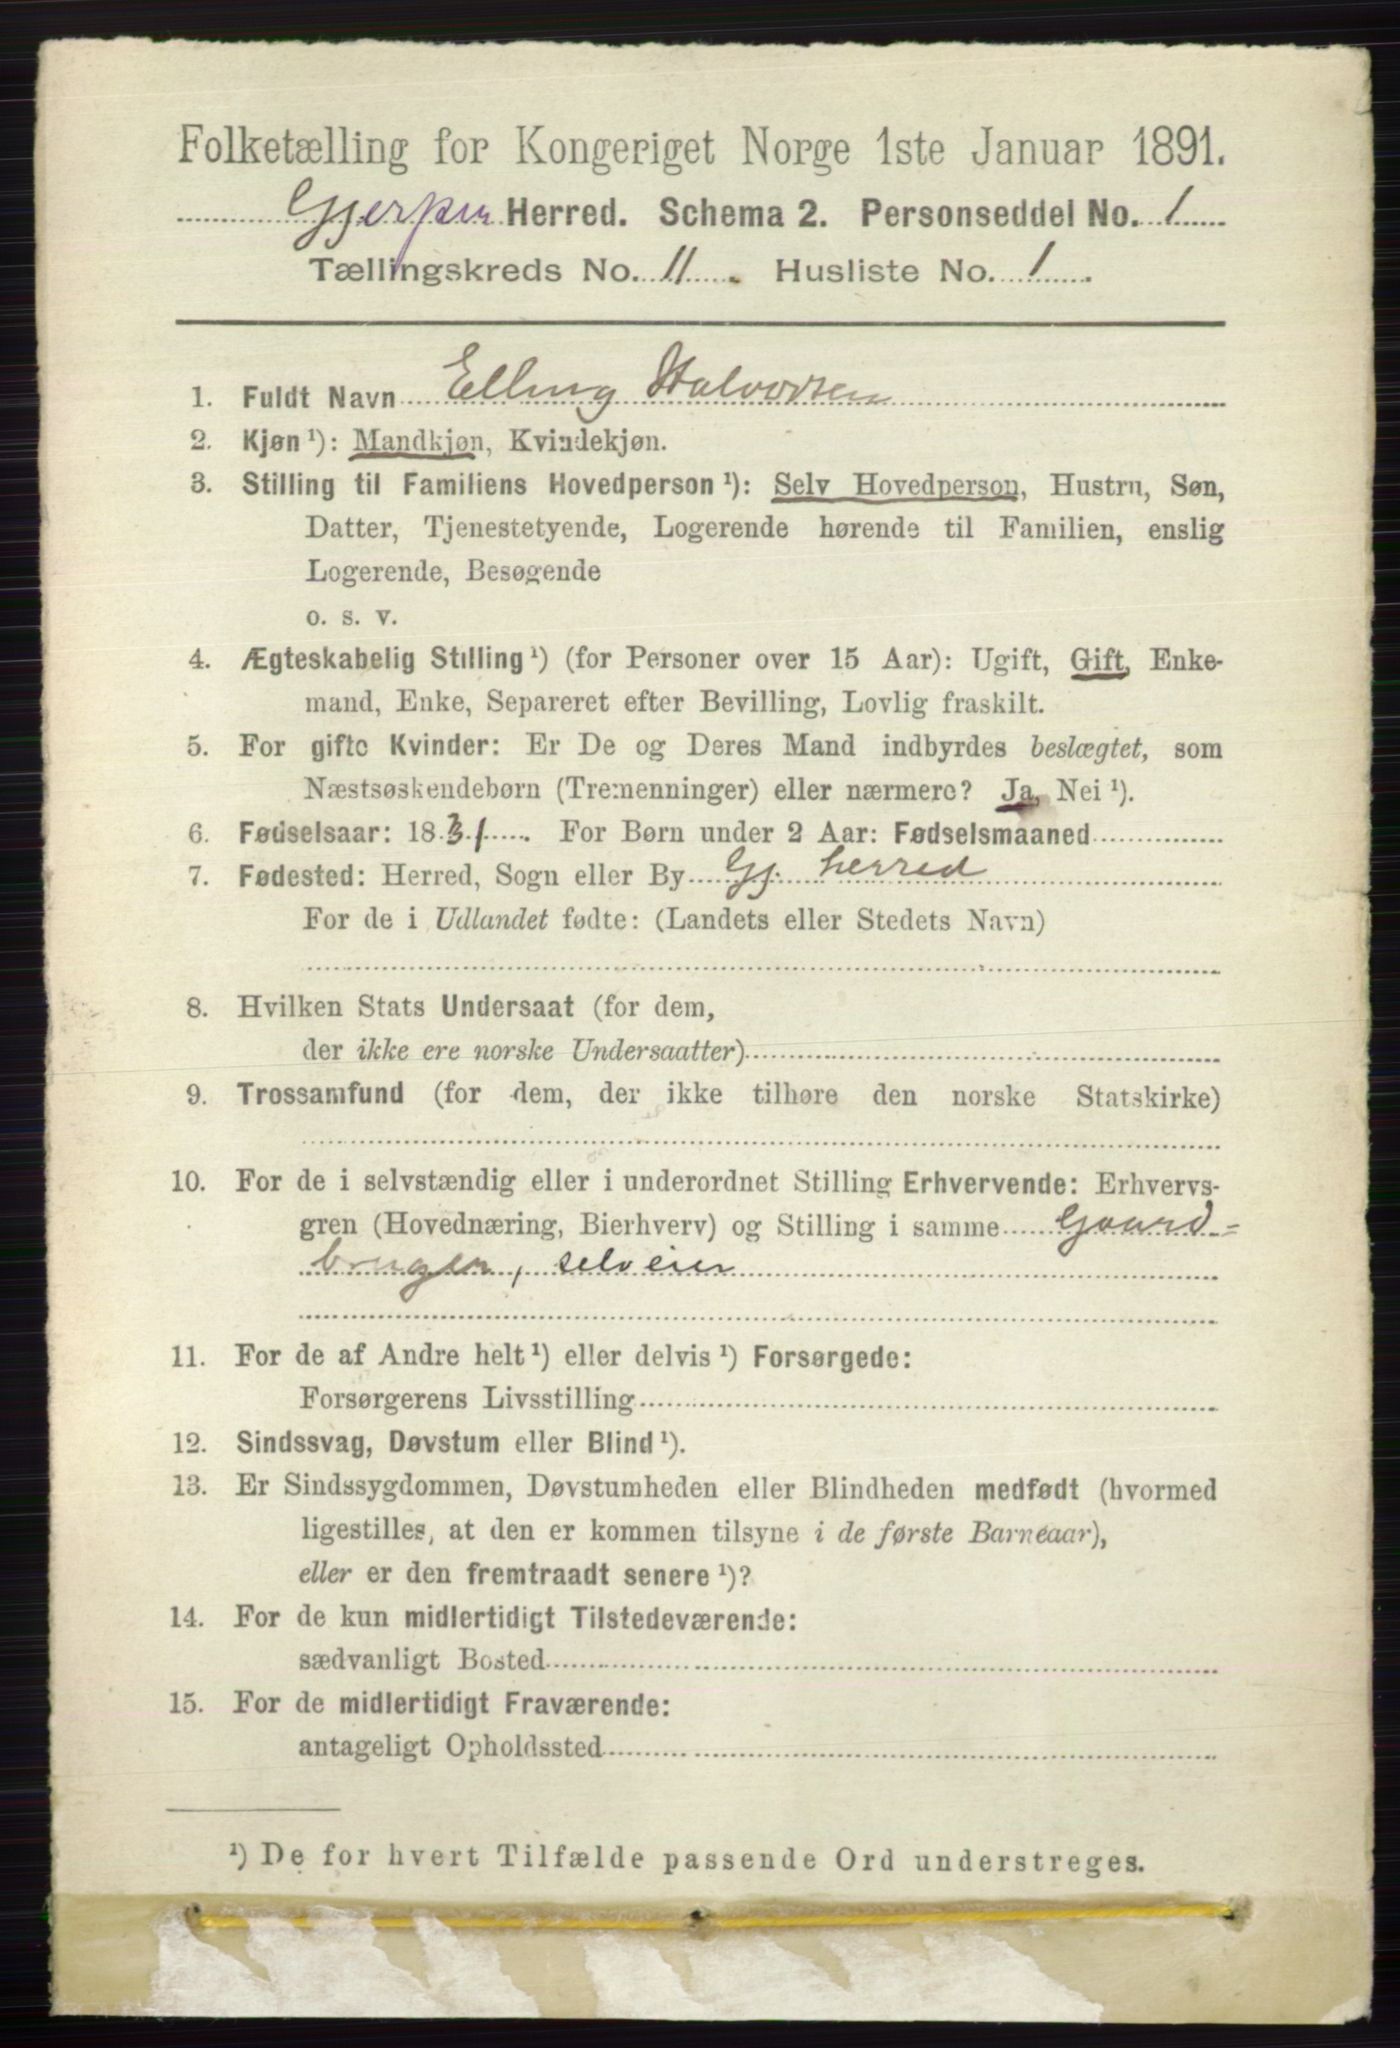 Folketælling for Kongeriget Norge 1ste Januar 1891.
Gjerpen Herred. Schema 2. Personseddel No. 1
Tællingskreds No. 11. Husliste No. 1.
1. Fuldt Navn Elling Halvorsen
2. Kjøn ¹): Mandkjøn, Kvindekjøn.
3. Stilling til Familiens Hovedperson ¹): Selv Hovedperson, Hustru, Søn,
Datter, Tjenestetyende, Logerende hørende til Familien, enslig
Logerende, Besøgende
o. s. v.
4. Ægteskabelig Stilling ¹) (for Personer over 15 Aar): Ugift, Gift, Enke-
mand, Enke, Separeret efter Bevilling, Lovlig fraskilt.
5. For gifte Kvinder: Er De og Deres Mand indbyrdes beslægtet, som
Næstsøskendebørn (Tremenninger) eller nærmere? Ja, Nei ¹).
6. Fødselsaar: 1831. For Børn under 2 Aar: Fødselsmaaned
7. Fødested: Herred, Sogn eller By Gj. herred
For de i Udlandet fødte: (Landets eller Stedets Navn)
8. Hvilken Stats Undersaat (for dem,
der ikke ere norske Undersaatter)
9. Trossamfund (for dem, der ikke tilhøre den norske Statskirke)
10. For de i selvstændig eller i underordnet Stilling Erhvervende: Erhvervs-
gren (Hovednæring, Bierhverv) og Stilling i samme Gaard=
bruger, selveier
11. For de af Andre helt ¹) eller delvis ¹) Forsørgede:
Forsørgerens Livsstilling
12. Sindssvag, Døvstum eller Blind ¹).
13. Er Sindssygdommen, Døvstumheden eller Blindheden medfødt (hvormed
ligestilles, at den er kommen tilsyne i de første Barneaar),
eller er den fremtraadt senere ¹)?
14. For de kun midlertidigt Tilstedeværende:
sædvanligt Bosted
15. For de midlertidigt Fraværende:
antageligt Opholdssted
¹) De for hvert Tilfælde passende Ord understreges.